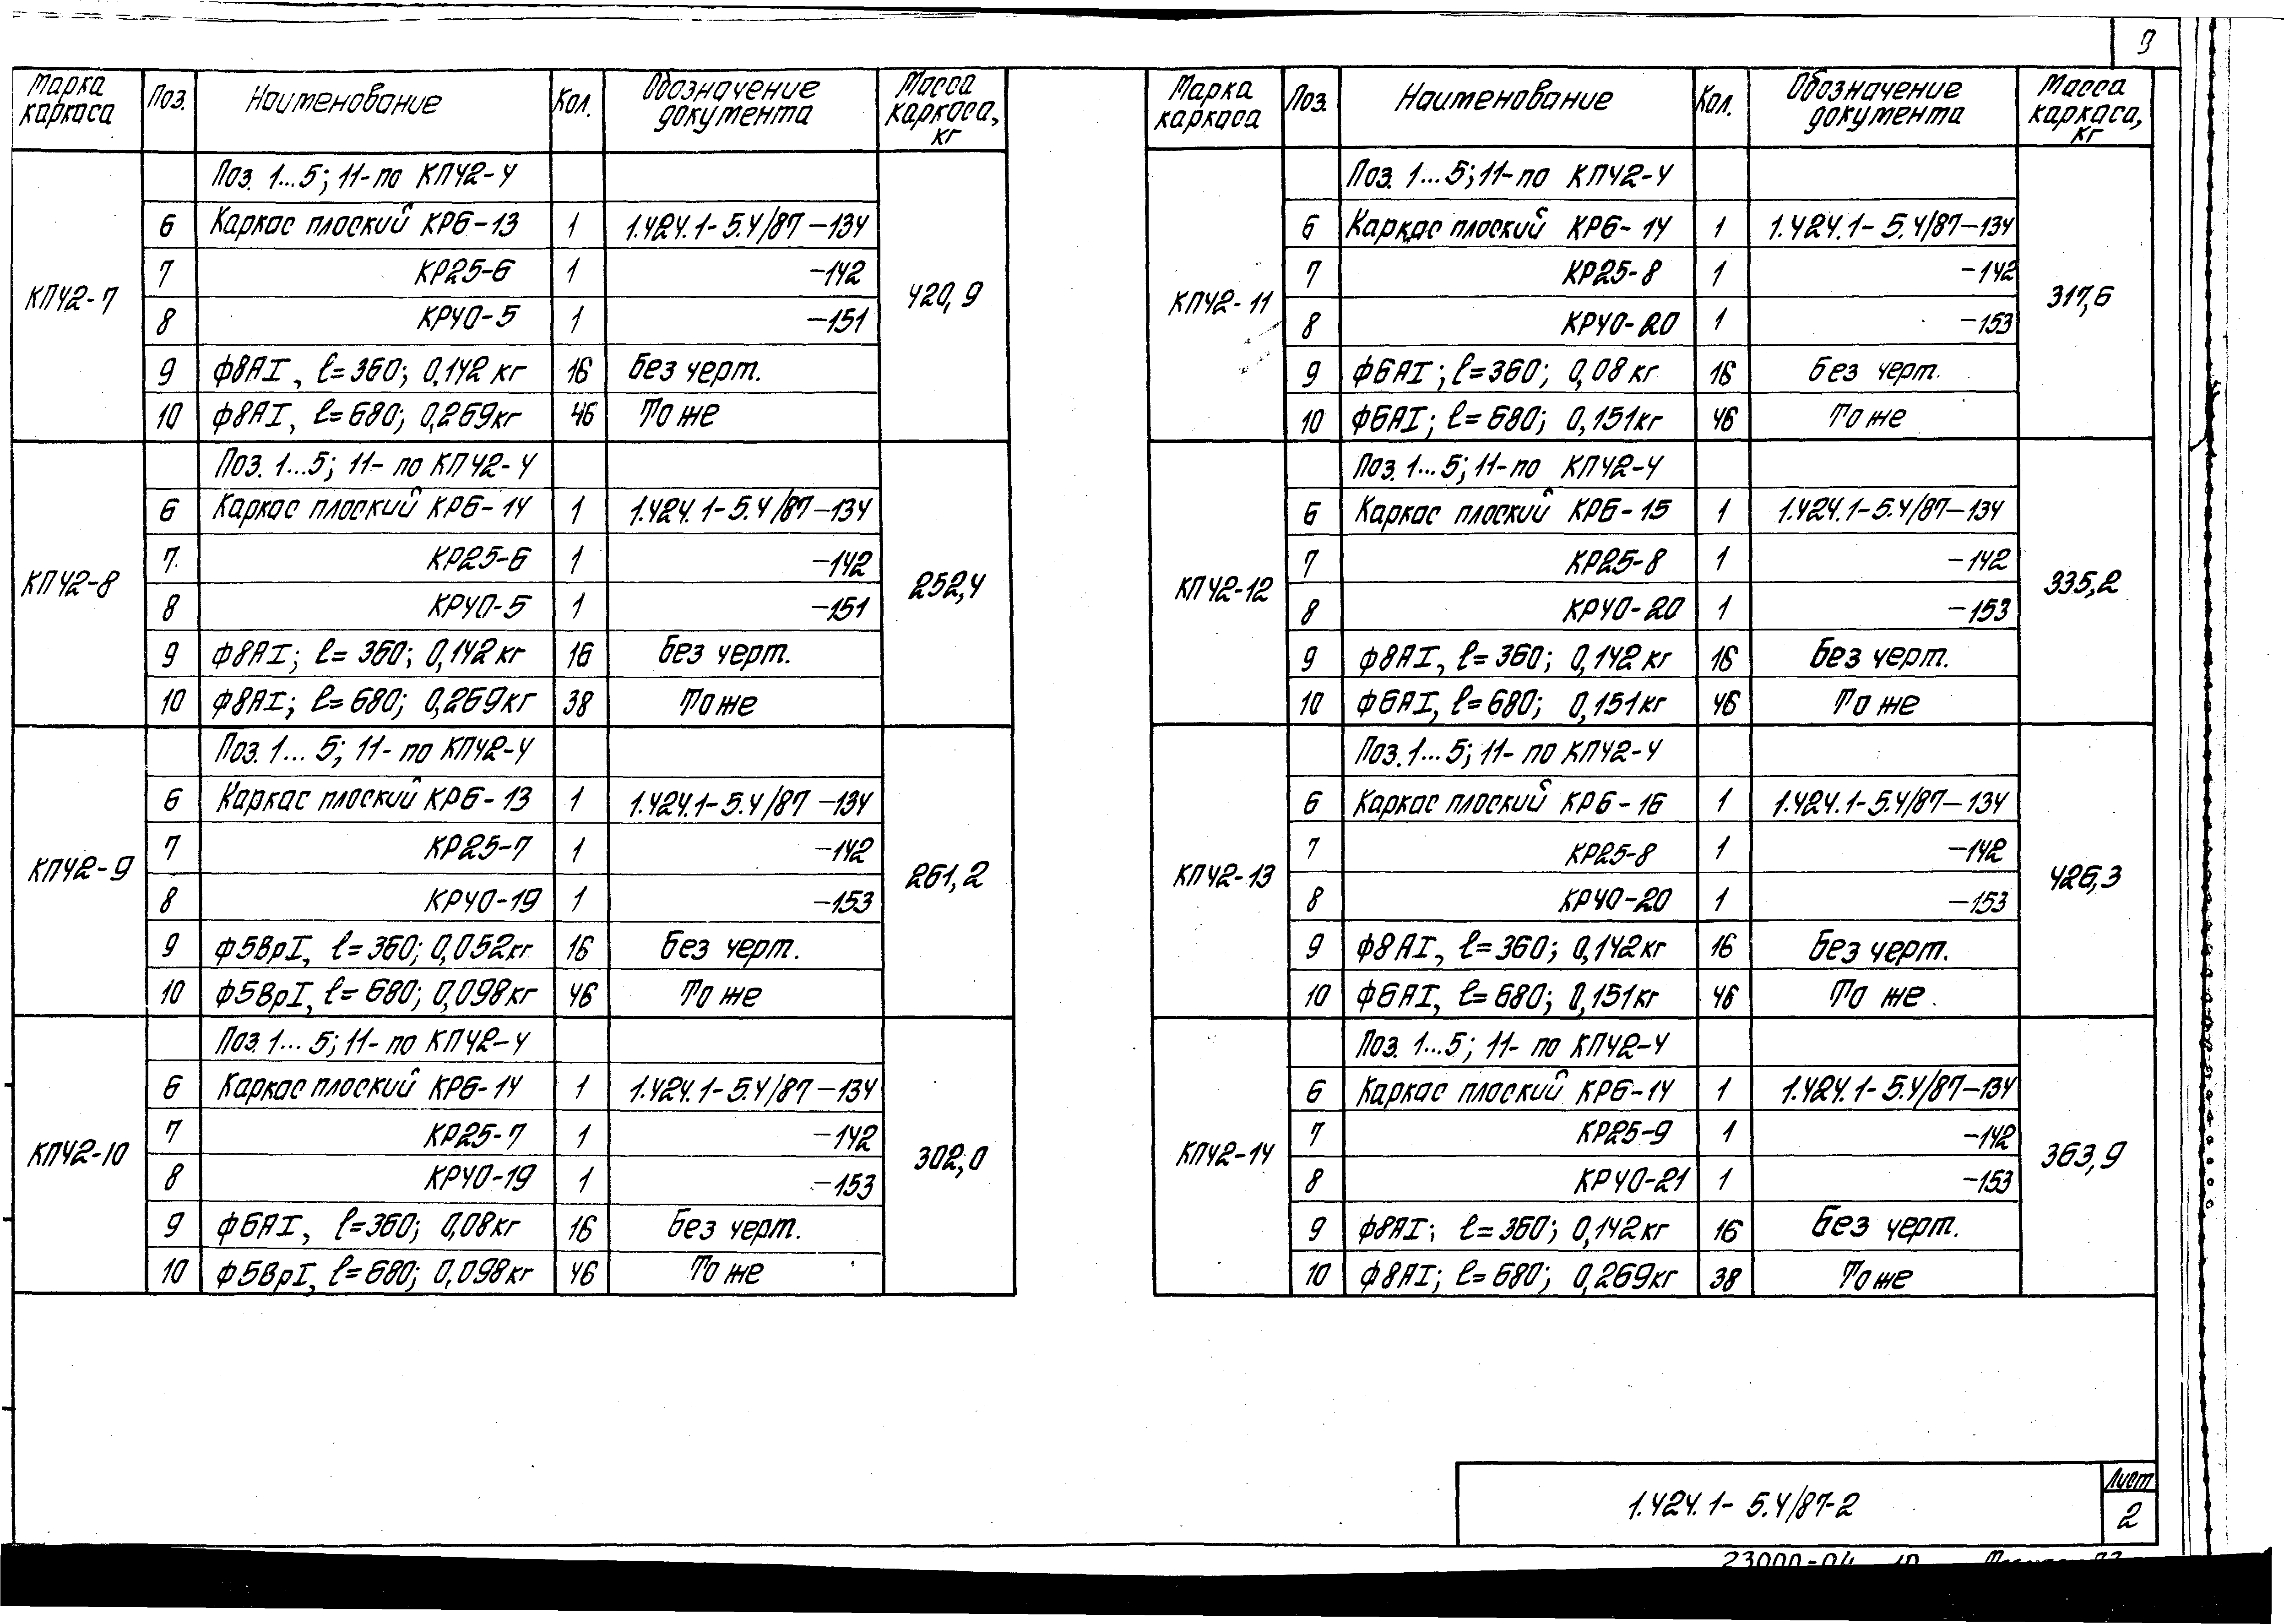 9
Марка каркаса | Поз. | Наименование | Кол. | Обозначение документа | Масса каркаса, кг
КП42-7 | | Поз. 1...5; 11- по КП42-4 | | | 420,9
6 | Каркас плоский КР6-13 | 1 | 1.424.1-5.4/87-134
7 | КР25-6 | 1 | -142
8 | КР40-5 | 1 | -151
9 | ф8АI, ℓ=360; 0,142 кг | 16 | Без черт.
10 | ф8АI, ℓ=680; 0,269кг | 46 | То же
КП42-8 | | Поз. 1...5; 11- по КП42-4 | | | 252,4
6 | Каркас плоский КР6-14 | 1 | 1.424.1-5.4/87-134
7. | КР25-6 | 1 | -142
8 | КР40-5 | 1 | -151
9 | ф8АI; ℓ=360; 0,142кг | 16 | Без черт.
10 | ф8АI; ℓ=680; 0,269кг | 38 | То же
КП42-9 | | Поз. 1...5; 11- по КП42-4 | | | 261,2
6 | Каркас плоский КР6-13 | 1 | 1.424.1-5.4/87-134
7 | КР25-7 | 1 | -142
8 | КР40-19 | 1 | -153
9 | ф5ВрI, ℓ=360; 0,052кг | 16 | Без черт.
10 | ф5ВрI, ℓ=680; 0,098кг | 46 | То же
КП42-10 | | Поз. 1...5; 11- по КП42-4 | | | 302,0
6 | Каркас плоский КР6-14 | 1 | 1.424.1-5.4/87-134
7 | КР25-7 | 1 | -142
8 | КР40-19 | 1 | -153
9 | ф6АI, ℓ=360; 0,08кг | 16 | Без черт.
10 | ф5ВрI, ℓ=680; 0,098кг | 46 | То же
Марка каркаса | Поз. | Наименование | Кол. | Обозначение документа | Масса каркаса, кг
КП42-11 | | Поз. 1...5; 11- по КП42-4 | | | 317,6
6 | Каркас плоский КР6-14 | 1 | 1.424.1-5.4/87-134
7 | КР25-8 | 1 | -142
8 | КР40-20 | 1 | -153
9 | ф6АI; ℓ=360; 0,08кг | 16 | Без черт.
10 | ф6АI; ℓ=680; 0,151кг | 46 | То же
КП42-12 | | Поз. 1...5; 11- по КП42-4 | | | 335,2
6 | Каркас плоский КР6-15 | 1 | 1.424.1-5.4/87-134
7 | КР25-8 | 1 | -142
8 | КР40-20 | 1 | -153
9 | ф8АI, ℓ=360; 0,142кг | 16 | Без черт.
10 | ф6АI, ℓ=680; 0,151кг | 46 | То же
КП42-13 | | Поз. 1...5; 11- по КП42-4 | | | 426,3
6 | Каркас плоский КР6-16 | 1 | 1.424.1-5.4/87-134
7 | КР25-8 | 1 | -142
8 | КР40-20 | 1 | -153
9 | ф8АI, ℓ=360; 0,142кг | 16 | Без черт.
10 | ф6АI, ℓ=680; 0,151кг | 46 | То же
КП42-14 | | Поз. 1...5; 11- по КП42-4 | | | 363,9
6 | Каркас плоский КР6-14 | 1 | 1.424.1-5.4/87-134
7 | КР25-9 | 1 | -142
8 | КР40-21 | 1 | -153
9 | ф8АI; ℓ=360; 0,142кг | 16 | Без черт.
10 | ф8АI; ℓ=680; 0,269кг | 38 | То же
1.424.1-5.4/87-2
Лист
2
23000-04 10